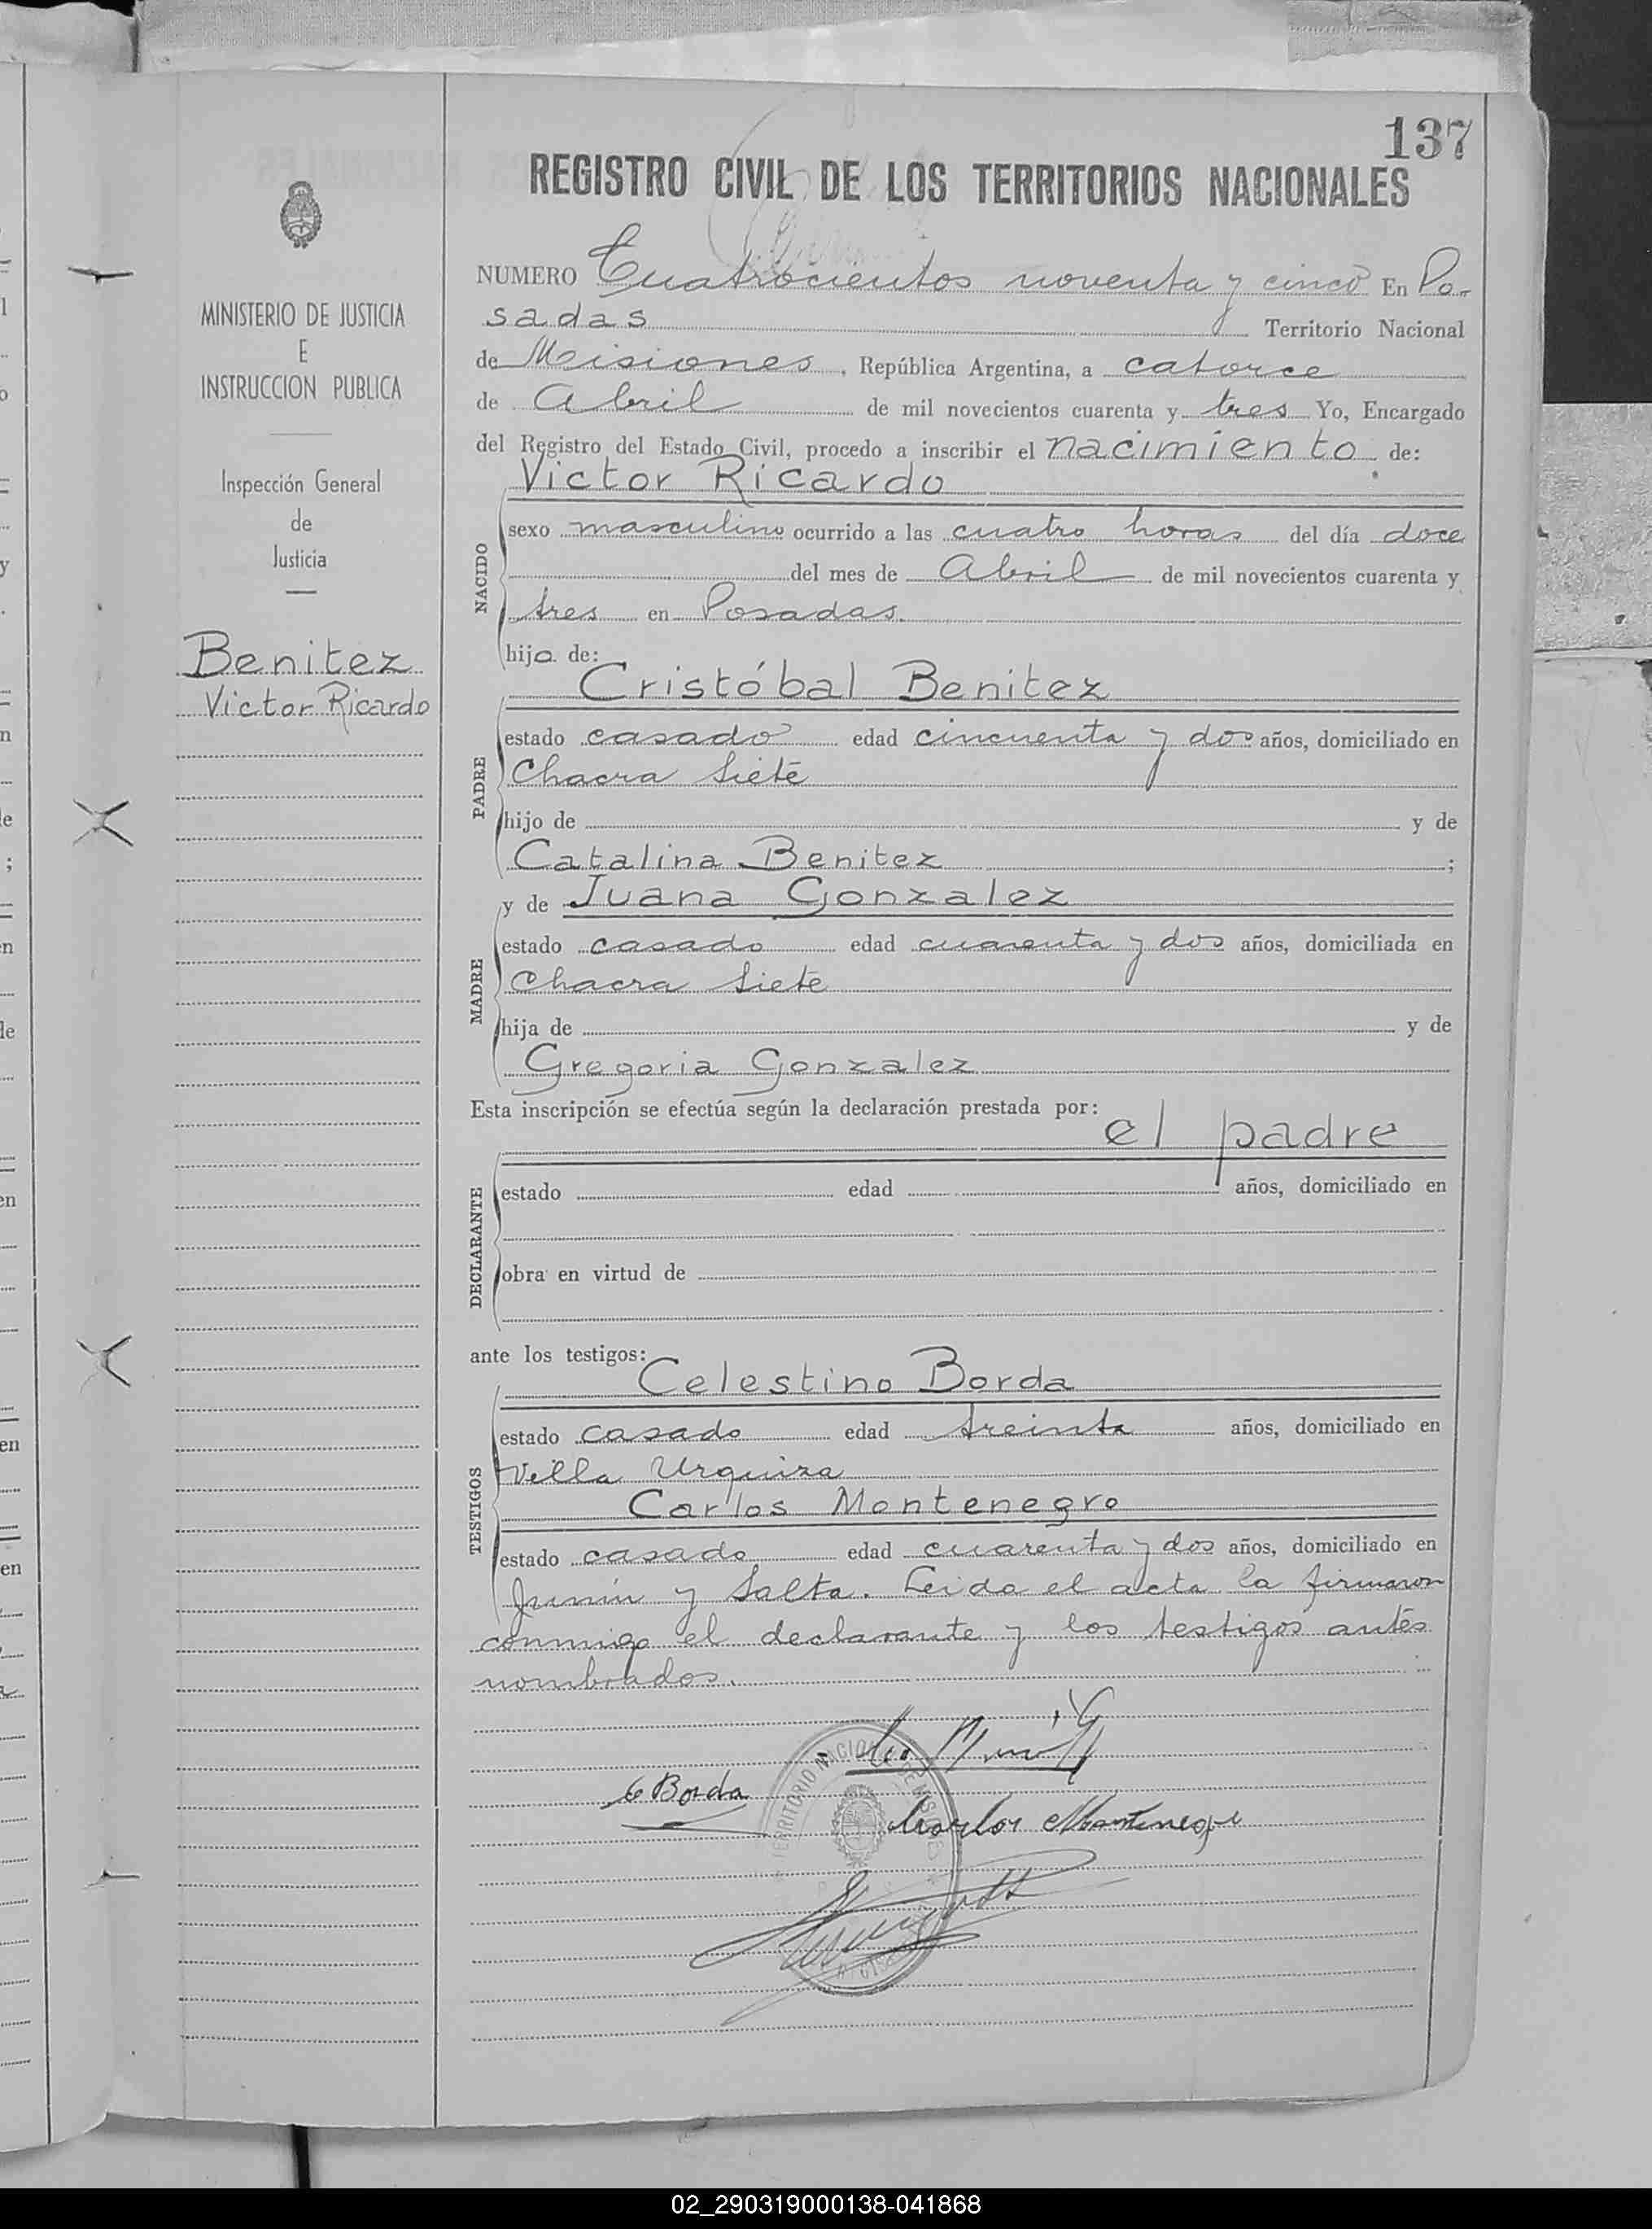 137
REGISTRO CIVIL DE LOS TERRITORIOS NACIONALES
MINISTERIO DE JUSTICIA
E
INSTRUCCION PUBLICA
Inspección General
de
Justicia
Benitez
Victor Ricardo
NUMERO Cuatrocientos noventa y cinco En Po-
sadas Territorio Nacional
de Misiones, República Argentina, a catorce
de Abril de mil novecientos cuarenta y tres Yo, Encargado
del Registro del Estado Civil, procedo a inscribir el nacimiento de:
Victor Ricardo
NACIDO
sexo masculino ocurrido a las cuatro horas del día doce
del mes de Abril de mil novecientos cuarenta y
tres en Posadas.
hijo de:
Cristóbal Benitez
PADRE
estado casado edad cincuenta y dos años, domiciliado en
Chacra Siete
hijo de y de
Catalina Benitez ;
y de Juana Gonzalez
MADRE
estado casado edad cuarenta y dos años, domiciliada en
Chacra Siete
hija de y de
Gregoria Gonzalez
Esta inscripción se efectúa según la declaración prestada por:
el padre
DECLARANTE
estado edad años, domiciliado en
obra en virtud de
ante los testigos:
Celestino Borda
TESTIGOS
estado casado edad treinta años, domiciliado en
Villa Urquiza
Carlos Montenegro
estado casado edad cuarenta y dos años, domiciliado en
Junín y Salta. Leida el acta la firmaron
conmigo el declarante y los testigos antes
nombrados.
C Borda
Carlos Montenegro
02_290319000138-041868